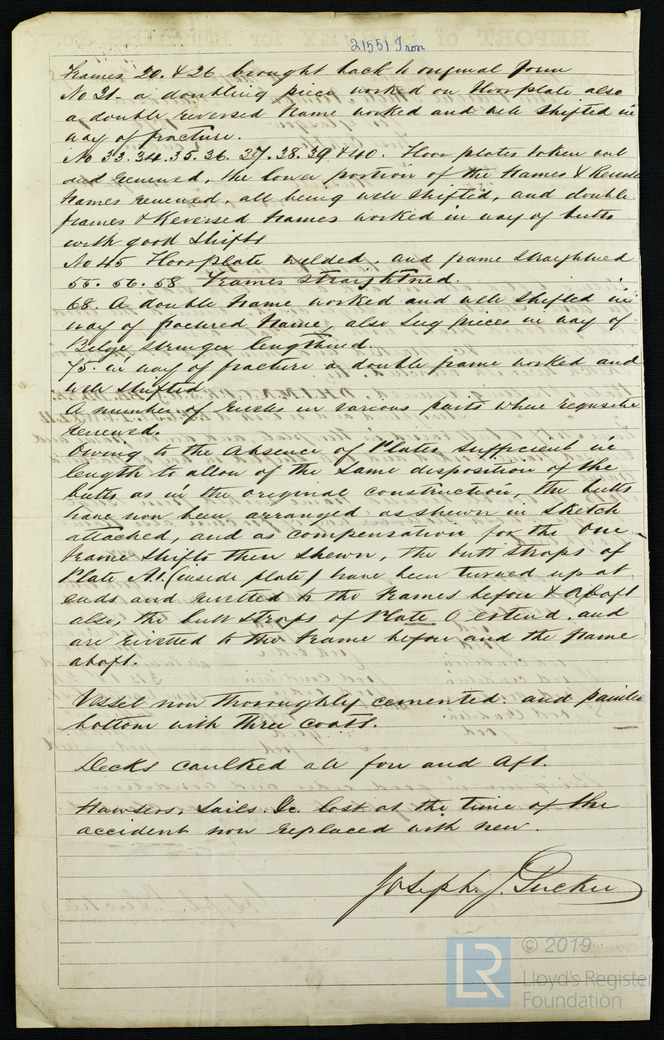 21551 Iron
Frames 20. & 26 brought back to original form
No 31. a doubling piece worked on floorplate also
a double reversed frame worked and well shifted in
way of fracture.
No 33. 34. 35. 36. 37. 38. 39 & 40. Floor plates taken out
and renewed, the lower portion of the frames & Reverse
frames renewed, all being well shifted, and double
frames & Reversed frames worked in way of butts
with good shifts
No 45 Floorplate welded. and frame straightned
55. 56. 58 Frames straightned.
68. A double frame worked and well shifted in
way of fractured frame, also Lug pieces in way of
Bilge Stringer lengthened.
75. in way of fracture a double frame worked and
well shifted
A number of rivets in various parts where requisite
renewed.
Owing to the absence of Plates sufficient in
length to allow of the same disposition of the
butts as in the original construction, the butts
have now been arranged as shewn in sketch
attached, and as compensation for the one
frame shifts then shewn, the butt straps of
Plate A1. (inside plate) have been turned up at
ends and rivetted to the frames before & abaft
also, the butt straps of Plate O extend. and
are rivetted to the frame before and the frame
abaft.
Vessel now thoroughly cemented: and painted
bottom with three coats.
Decks caulked all fore and aft.
Hawsers, Sails &c. lost at the time of the
accident now replaced with new.
Joseph J. Tucker
LR © 2019
Lloyd's Register
Foundation